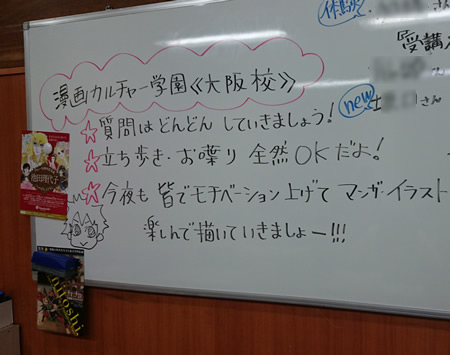 漫画カルチャー学園《大阪校》
☆質問はどんどんしていきましょう!
☆立ち歩き・お喋り 全然OKだよ!
☆今夜も 皆でモチベーション上げて マンガ・イラスト
楽しんで描いていきましょー!!!
体験
さん
『受講
new
さん
池田理代子
hitoshi